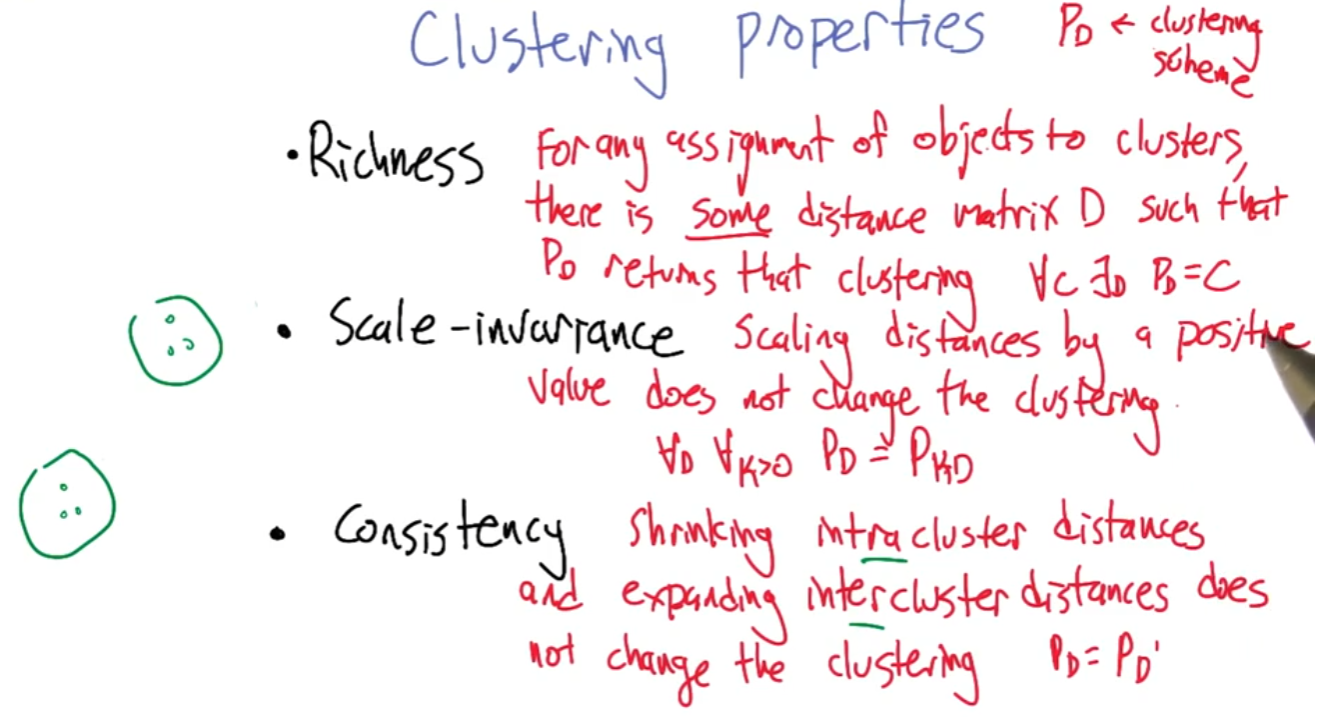 Clustering properties
P_D ← clustering
scheme
• Richness For any assignment of objects to clusters,
there is some distance matrix D such that
P_D returns that clustering ∀C ∃D P_D = C
• Scale-invariance Scaling distances by a positive
value does not change the clustering.
∀D ∀K>0 P_D = P_KD
• Consistency Shrinking intracluster distances
and expanding intercluster distances does
not change the clustering P_D = P_D'